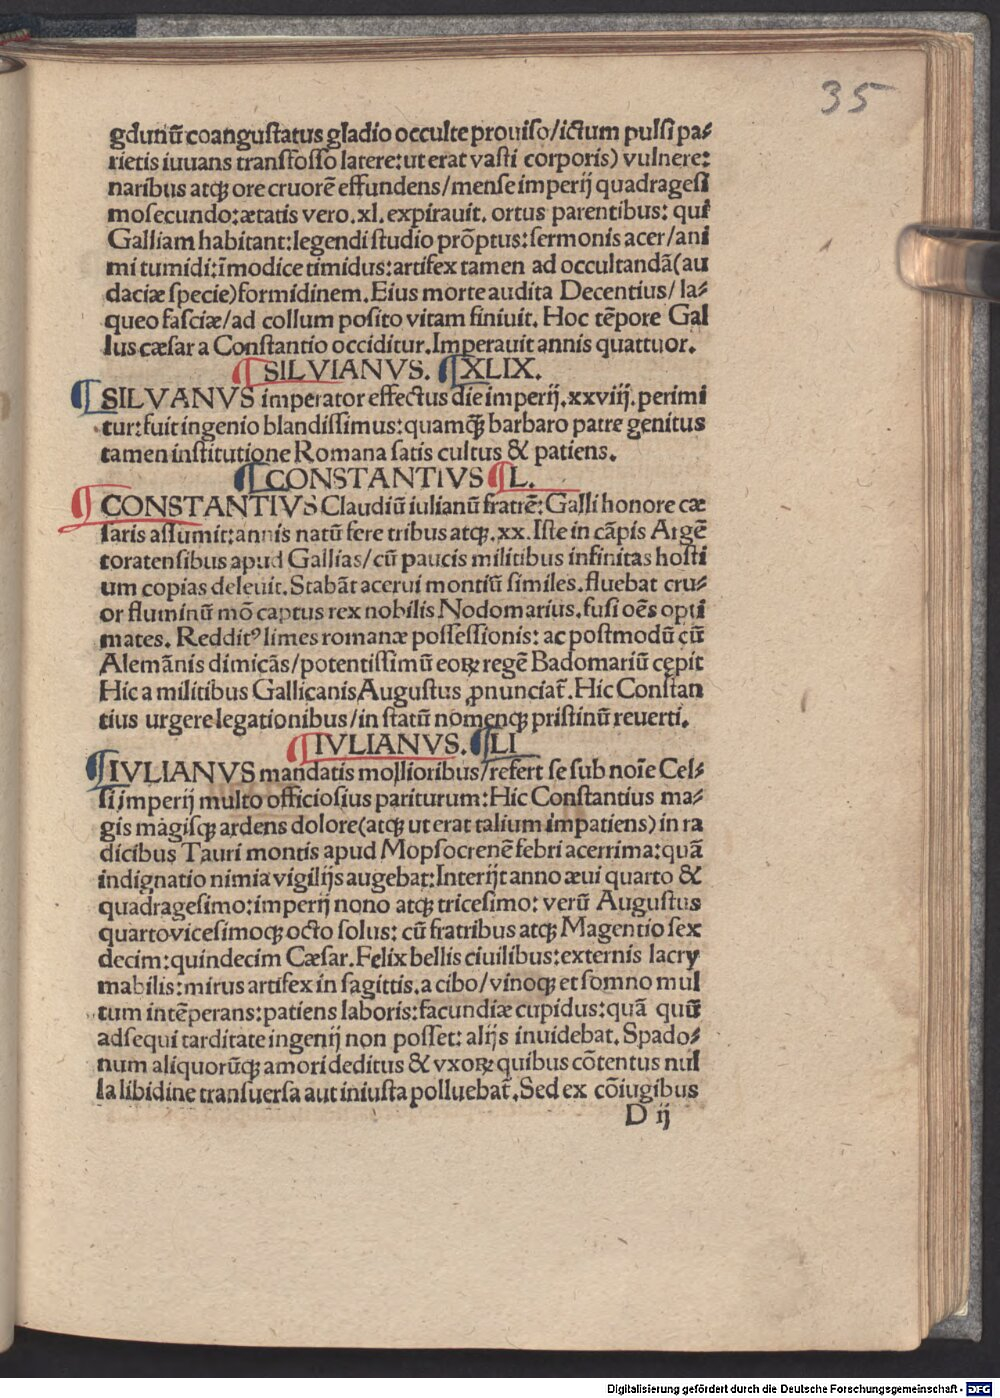 35
gdunū coangustatus gladio occulte prouiso/ictum pulsi pa⸗
rietis iuuans transfosso latere:ut erat vasti corporis) vulnere:
naribus atqꝫ ore cruorē effundens/mense imperij quadragesi
mosecundo:ætatis vero.xl.expirauit. ortus parentibus: qui
Galliam habitant:legendi studio prōptus:sermonis acer/ani
mi tumidi:īmodice timidus:artifex tamen ad occultandā(au
daciæ specie)formidinem.Eius morte audita Decentius/ la⸗
queo fasciæ/ad collum posito vitam finiuit. Hoc tēpore Gal
lus cæsar a Constantio occiditur.Imperauit annis quattuor.
¶SILVIANVS. ¶XLIX.
¶SILVANVS imperator effectus die imperij.xxviij.perimi
tur:fuit ingenio blandissimus:quamqꝫ̄ barbaro patre genitus
tamen institutione Romana satis cultus & patiens.
¶CONSTANTIVS ¶L.
¶CONSTANTIVS Claudiū iulianū fratrē:Galli honore cæ
saris assumit:annis natū fere tribus atqꝫ.xx.Iste in cāpis Argē
toratensibus apud Gallias/cū paucis militibus infinitas hosti
um copias deleuit.Stabāt acerui montiū similes.fluebat cru⸗
or fluminū mō captus rex nobilis Nodomarius.fusi oēs opti
mates. Redditꝰ limes romanæ possessionis: ac postmodū cū
Alemānis dimicās/potentissimū eoꝝ regē Badomariū cępit
Hic a militibus Gallicanis Augustus ꝓnunciat̄.Hic Constan
tius urgere legationibus/in statū nomenqꝫ pristinū reuerti.
¶IVLIANVS. ¶LI
¶IVLIANVS mandatis mollioribus/refert se sub noīe Cel⸗
si imperij multo officiosius pariturum:Hic Constantius ma⸗
gis magisqꝫ ardens dolore(atqꝫ ut erat talium impatiens)in ra
dicibus Tauri montis apud Mopsocrenē febri acerrima:quā
indignatio nimia vigilijs augebat:Interijt anno æui quarto &
quadragesimo:imperij nono atqꝫ tricesimo: verū Augustus
quartovicesimoqꝫ octo solus: cū fratribus atqꝫ Magentio sex
decim:quindecim Cæsar.Felix bellis ciuilibus:externis lacry
mabilis:mirus artifex in sagittis.a cibo/vinoqꝫ et somno mul
tum intēperans:patiens laboris:facundiæ cupidus:quā quū
adsequi tarditate ingenij non posset: alijs inuidebat.Spado⸗
num aliquorūqꝫ amori deditus & vxoꝝ quibus cōtentus nul
la libidine transuersa aut iniusta polluebat̄.Sed ex cōiugibus
D ij
Digitalisierung gefördert durch die Deutsche Forschungsgemeinschaft - DFG